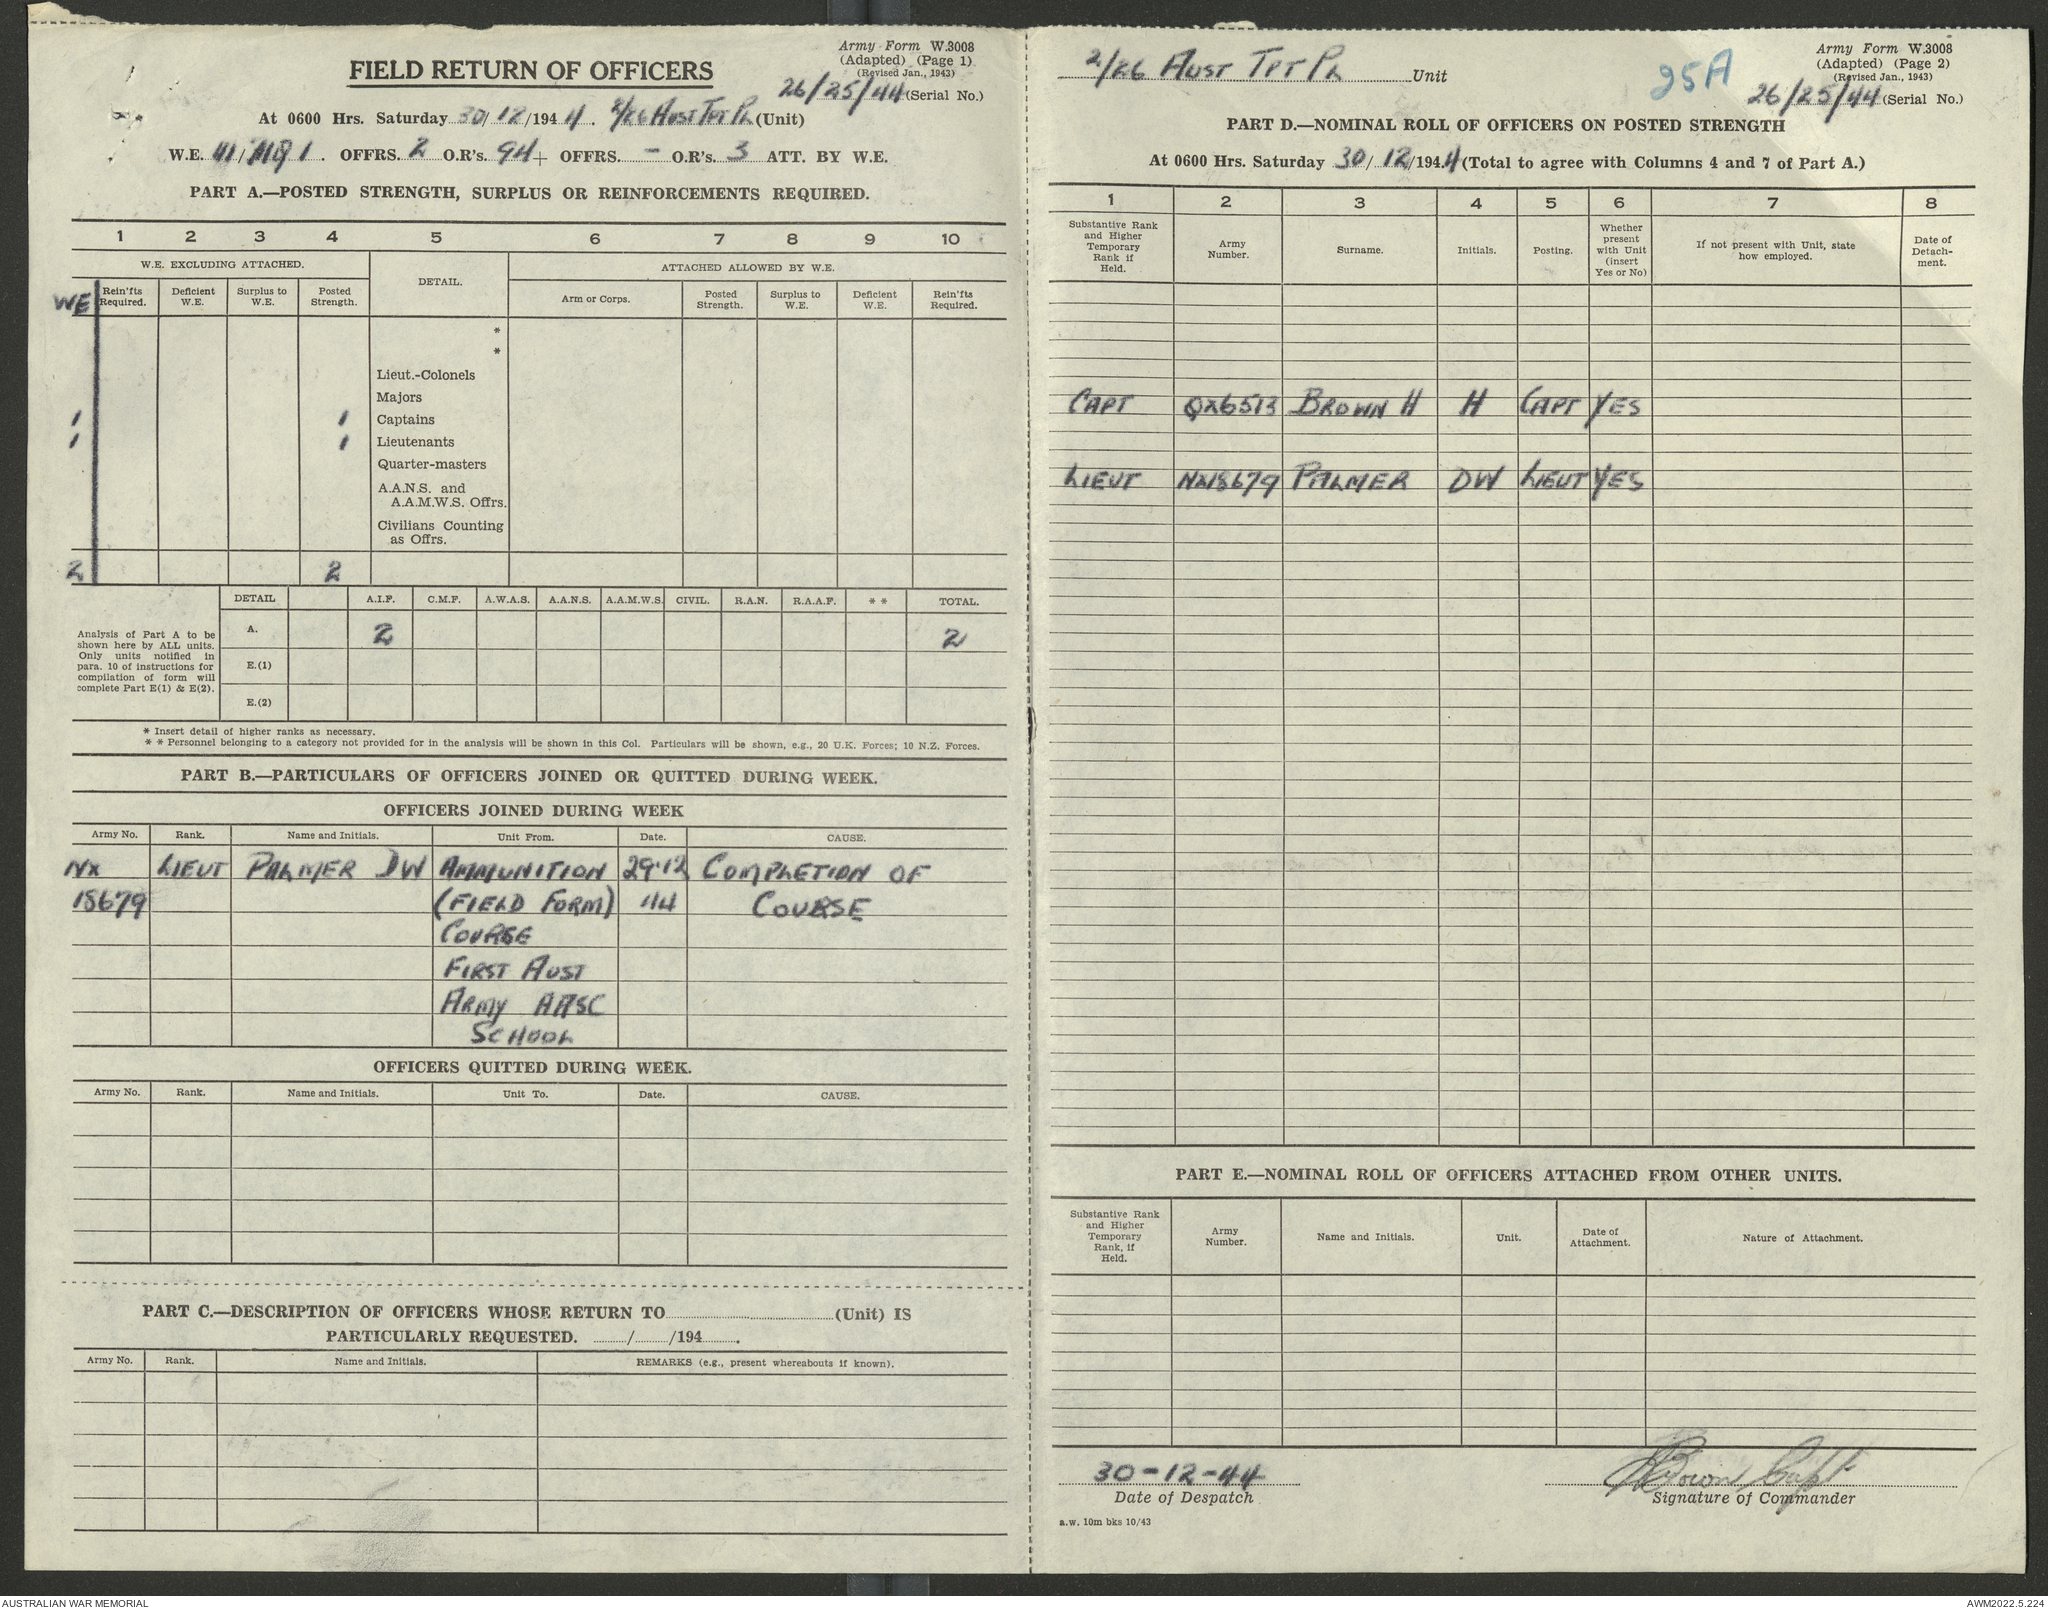 Army Form W.3008
(Adapted) (Page 1)
(Revised Jan., 1943)
FIELD RETURN OF OFFICERS
26/25/44 (Serial No.)
At 0600 Hrs. Saturday 30/12/1944. 2/26 Aust Tpt Pl (Unit)
W.E. 111/ 1. OFFRS. 2 O.R's. 94+ OFFRS. - O.R's. 3 ATT. BY W.E.
PART A.—POSTED STRENGTH, SURPLUS OR REINFORCEMENTS REQUIRED.
1 2 3 4 5 6 7 8 9 10
W.E. EXCLUDING ATTACHED. DETAIL. ATTACHED ALLOWED BY W.E.
WE Rein'fts Required. Deficient W.E. Surplus to W.E. Posted Strength. Arm or Corps. Posted Strength. Surplus to W.E. Deficient W.E. Rein'fts Required.
*
*
Lieut.-Colonels
Majors
1 1 Captains
1 1 Lieutenants
Quarter-masters
A.A.N.S. and
A.A.M.W.S. Offrs.
Civilians Counting
as Offrs.
2 2
DETAIL A.I.F. C.M.F. A.W.A.S. A.A.N.S. A.A.M.W.S. CIVIL. R.A.N. R.A.A.F. * * TOTAL.
Analysis of Part A to be
shown here by ALL units.
Only units notified in
para. 10 of instructions for
compilation of form will
complete Part E(1) & E(2).
A. 2 2
E.(1)
E.(2)
* Insert detail of higher ranks as necessary.
* * Personnel belonging to a category not provided for in the analysis will be shown in this Col. Particulars will be shown, e.g., 20 U.K. Forces; 10 N.Z. Forces.
PART B.—PARTICULARS OF OFFICERS JOINED OR QUITTED DURING WEEK.
OFFICERS JOINED DURING WEEK
Army No. Rank. Name and Initials. Unit From. Date. CAUSE.
NX LIEUT PALMER DW AMMUNITION 29.12 COMPLETION OF
18679 (FIELD FORM) 44 COURSE
COURSE
FIRST AUST
ARMY AASC
SCHOOL
OFFICERS QUITTED DURING WEEK.
Army No. Rank. Name and Initials. Unit To. Date. CAUSE.
PART C.—DESCRIPTION OF OFFICERS WHOSE RETURN TO (Unit) IS
PARTICULARLY REQUESTED. / /194 .
Army No. Rank. Name and Initials. REMARKS (e.g., present whereabouts if known).
2/26 AUST TPT PL Unit
25A
Army Form W.3008
(Adapted) (Page 2)
(Revised Jan., 1943)
26/25/44 (Serial No.)
PART D.—NOMINAL ROLL OF OFFICERS ON POSTED STRENGTH
At 0600 Hrs. Saturday 30/12/1944 (Total to agree with Columns 4 and 7 of Part A.)
1 2 3 4 5 6 7 8
Substantive Rank and Higher Temporary Rank if Held. Army Number. Surname. Initials. Posting. Whether present with Unit (insert Yes or No) If not present with Unit, state how employed. Date of Detach-ment.
CAPT QX6513 BROWN H H CAPT YES
LIEUT NX18679 PALMER DW LIEUT YES
PART E.—NOMINAL ROLL OF OFFICERS ATTACHED FROM OTHER UNITS.
Substantive Rank and Higher Temporary Rank, if Held. Army Number. Name and Initials. Unit. Date of Attachment. Nature of Attachment.
30-12-44
Date of Despatch
HBrown Capt
Signature of Commander
a.w. 10m bks 10/43
AUSTRALIAN WAR MEMORIAL
AWM2022.5.224